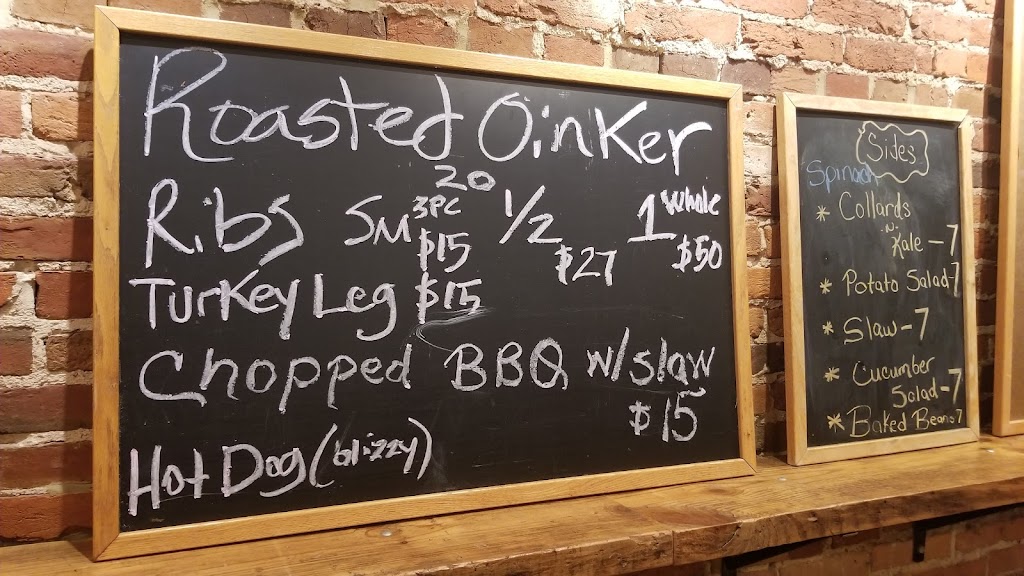 Roasted Oinker
20
Ribs SM 3PC $15 1/2 $27 1 Whole $50
Turkey Leg $15
Chopped BBQ w/slaw
$15
Hot Dog (blizzy)
Sides
Spinach
* Collards
-N-
Kale - 7
* Potato Salad-7
* Slaw - 7
* Cucumber
Salad - 7
* Baked Beans 7